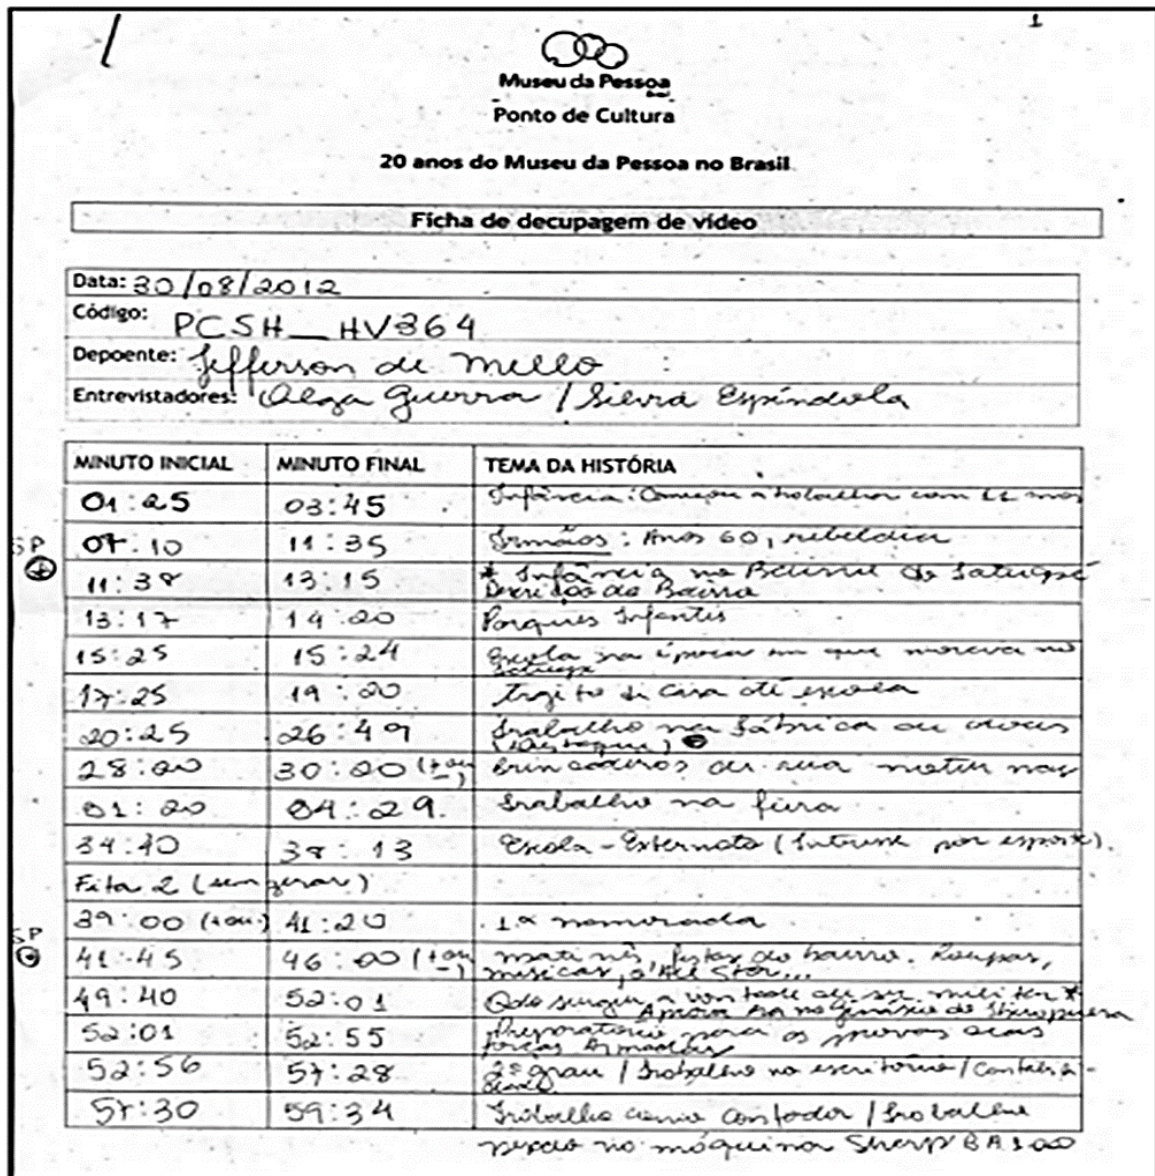 1
Museu da Pessoa
Ponto de Cultura
20 anos do Museu da Pessoa no Brasil
Ficha de decupagem de vídeo
Data: 30/08/2012
Código: PCSH_HV364
Depoente: Jefferson de Mello
Entrevistadores: Olga Guerra / Silvia Espíndola
MINUTO INICIAL MINUTO FINAL TEMA DA HISTÓRIA
01:25 03:45 Infância: Começou a trabalhar com 11 anos
SP 07:10 11:35 Irmãos: Anos 60, rebeldia
11:38 13:15 * Infância no Bairro do Tatuapé
Descrição do Bairro
13:17 14:20 Parques Infantis
15:25 15:24 Escola na época em que morava no
Tatuapé
17:25 19:20 Trajeto de casa até escola
20:25 26:49 Trabalho na fábrica de
(Destaque)
28:00 30:00 (+ou-) Brincadeiras de rua
01:20 04:29 Trabalho na feira
34:40 38:13 Escola - Externato (Interesse por esporte).
Fita 2 (sem zerar)
39:00 (+ou-) 41:20 1ª namorada
SP 41:45 46:00 (+ou-) matinês, festas do bairro. Roupas,
músicas, o All Star...
49:40 52:01 Qdo surgiu a vontade de ser militar *
no Ginásio do Ibirapuera
52:01 52:55 Preparatório para as provas das
forças Armadas
52:56 57:28 2º grau / Trabalho no escritório /
57:30 59:34 Trabalho como contador / Trabalho
na máquina Sharp BA 100